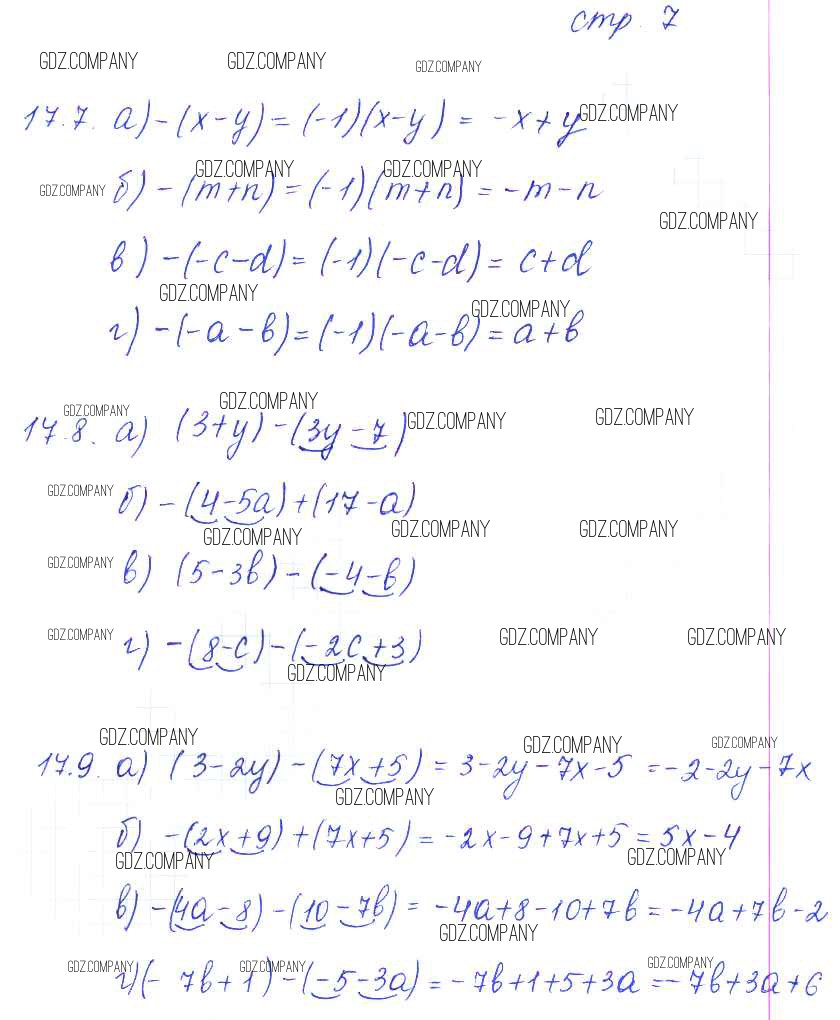 стр. 7
GDZ.COMPANY GDZ.COMPANY GDZ.COMPANY
17.7. а) -(x-y) = (-1)(x-y) = -x+y GDZ.COMPANY
GDZ.COMPANY GDZ.COMPANY
GDZ.COMPANY б) -(m+n) = (-1)(m+n) = -m-n
GDZ.COMPANY
в) -(-c-d) = (-1)(-c-d) = c+d
GDZ.COMPANY GDZ.COMPANY
г) -(-a-b) = (-1)(-a-b) = a+b
GDZ.COMPANY GDZ.COMPANY
17.8. а) (3+y)-(3y-7) GDZ.COMPANY GDZ.COMPANY
GDZ.COMPANY б) -(4-5a)+(17-a)
GDZ.COMPANY GDZ.COMPANY GDZ.COMPANY
GDZ.COMPANY в) (5-3b)-(-4-b)
GDZ.COMPANY г) -(8-c)-(-2c+3) GDZ.COMPANY GDZ.COMPANY
GDZ.COMPANY
GDZ.COMPANY GDZ.COMPANY GDZ.COMPANY
17.9. а) (3-2y)-(7x+5) = 3-2y-7x-5 = -2-2y-7x
GDZ.COMPANY
б) -(2x+9)+(7x+5) = -2x-9+7x+5 = 5x-4
GDZ.COMPANY GDZ.COMPANY
в) -(4a-8)-(10-7b) = -4a+8-10+7b = -4a+7b-2
GDZ.COMPANY
GDZ.COMPANY GDZ.COMPANY GDZ.COMPANY
г) (-7b+1)-(-5-3a) = -7b+1+5+3a = -7b+3a+6